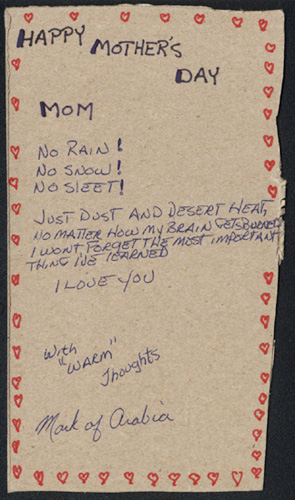 HAPPY MOTHER'S
DAY
MOM
NO RAIN!
NO SNOW!
NO SLEET!
JUST DUST AND DESERT HEAT,
NO MATTER HOW MY BRAIN GETS BURNED
I WONT FORGET THE MOST IMPORTANT
THING I'VE LEARNED
I LOVE YOU
With
"WARM"
Thoughts
Mark of Arabia